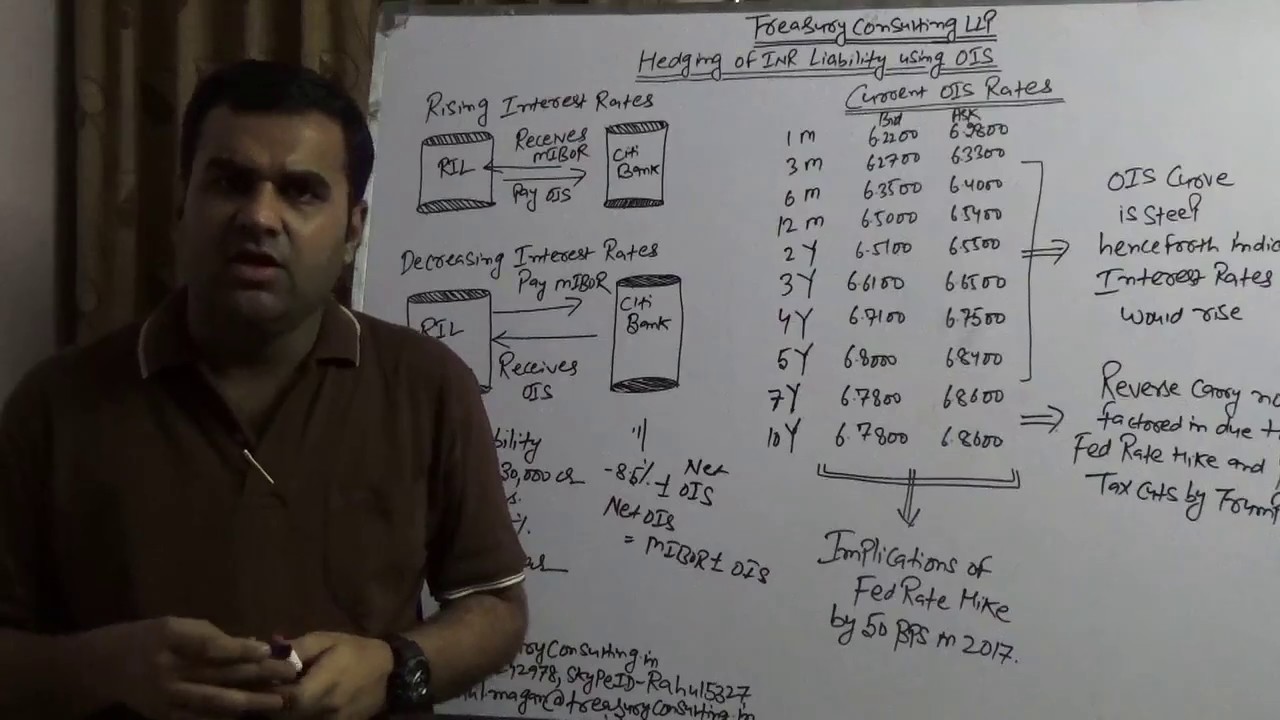 Treasury Consulting LLP
Hedging of INR Liability using OIS
Rising Interest Rates
RIL
Receives
MIBOR
Pay OIS
Citi
Bank
Decreasing Interest Rates
Pay MIBOR
RIL
Receives
OIS
Citi
Bank
bility
30,000 cr
-8.5% ± Net
OIS
Net OIS
= MIBOR ± OIS
Current OIS Rates
Bid Ask
1 m 6.2200 6.2800
3 m 6.2700 6.3300
6 m 6.3500 6.4000
12 m 6.5000 6.5400
2 Y 6.5100 6.5500
3 Y 6.6100 6.6500
4 Y 6.7100 6.7500
5 Y 6.8000 6.8400
7 Y 6.7800 6.8600
10 Y 6.7800 6.8600
OIS Curve
is Steep
henceforth Indic
Interest Rates
would rise
Reverse Carry no
factored in due t
Fed Rate Hike and
Tax Cuts by Trump
Implications of
Fed Rate Hike
by 50 BPS in 2017.
ryConsulting.in
12978, SkyPeID-Rahul5327
ulmagan@treasuryconsulting.in